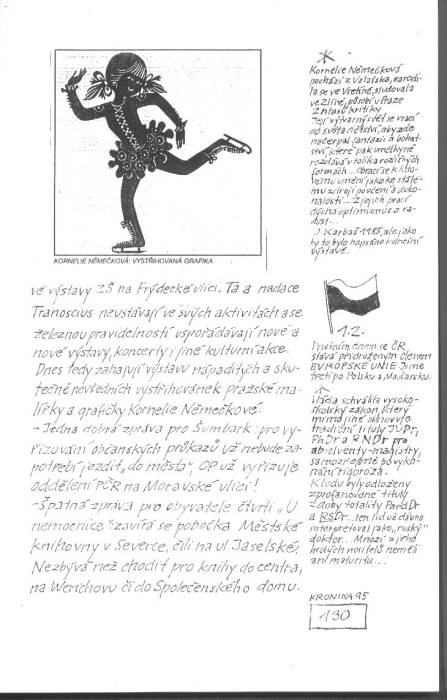 KORNELIE NĚMEČKOVÁ: VYSTŘIHOVANÁ GRAFIKA
vé výstavy ZŠ na Frýdecké ulici. Ta a nadace
Tranoscius neustávají ve svých aktivitách a se
železnou pravidelností uspořádávají nové a
nové výstavy, koncerty i jiné kulturní akce.
Dnes tedy zahajují výstavu nápaditých a sku-
tečně nevšedních vystřihovánek pražské ma-
lířky a grafičky Kornelie Němečkové.
- Jedna dobrá zpráva pro Šumbark: pro vy-
řizování občanských průkazů už nebude za-
potřebí jezdit "do města", OP už vyřizuje
oddělení PČR na Moravské ulici!
- Špatná zpráva pro obyvatele čtvrti "U
nemocnice" zavírá se pobočka Městské
knihovny v Severce, čili na ul Jaselské.
Nezbývá než chodit pro knihy do centra,
na Werichovu či do Společenského domu.
Kornelie Němečková
pochází z Valašska, narodi-
la se ve Vsetíně, studovala
ve Zlíně, působí v Praze
Z hlasů kritiky
Její výtvarný svět se vrací
do světa dětství, aby zde
načerpal fantazii a bohat-
ství, které pak umělkyně
rozdává v tolika rozličných
formách... Obrací se k lido-
vému umění jako ke stále-
mu zdroji poučení a doko-
nalosti... Z jejich prací
dýchá optimismus a ra-
dost...
J. Karbaš 1985, ale jako
by to bylo napsáno k dnešní
výstavě.
1.2.
Dnešním dnem se ČR
stává přidruženým členem
EVROPSKÉ UNIE. Jsme
třetí po Polsku a Maďarsku.
Vláda schválila vysoko-
školský zákon, který
mimo jiné obnovuje
tradiční tituly JUDr,
PhDr a RNDr pro
absolventy-magistry,
samozřejmě po vyko-
nání rigoróza.
K ledu byly odloženy
zprofanované tituly
z doby totality PaedDr
a RSDr... ten lid už dávno
interpretoval jako "ruský"
doktor... Mnozí z jeho
hrdých nositelů neměli
ani maturitu...
KRONIKA 95
130